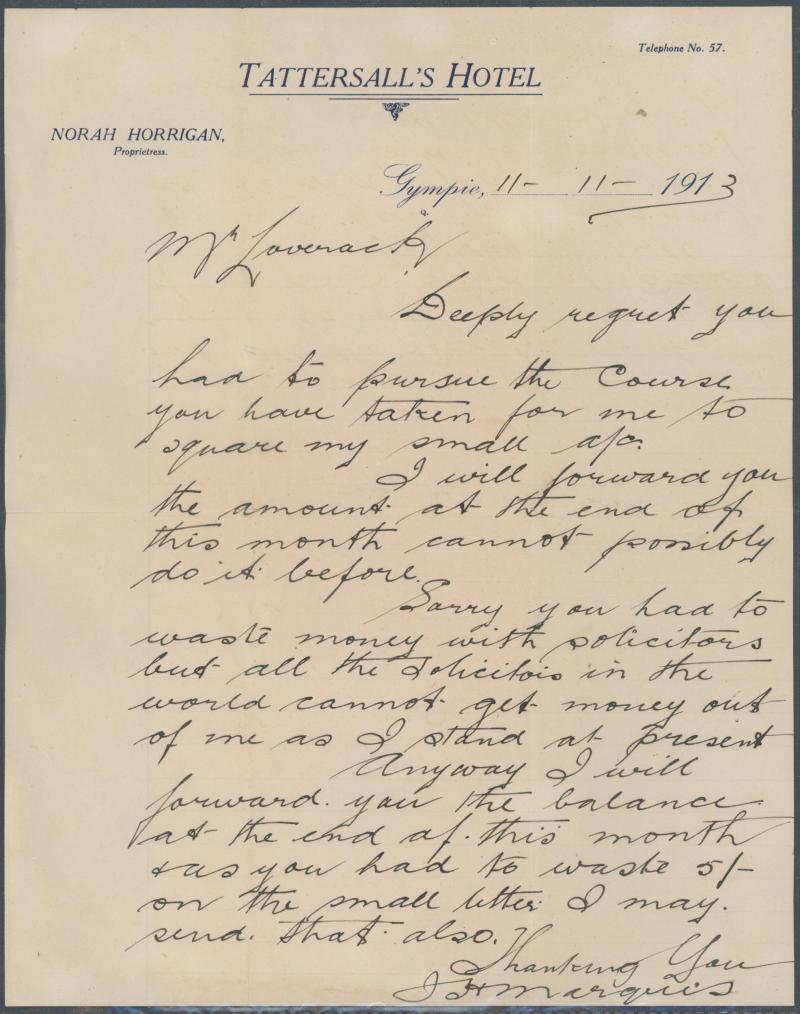 Telephone No. 57.
TATTERSALL'S HOTEL
NORAH HORRIGAN,
Proprietress.
Gympie, 11- 11- 1913
Mr Loverack
Deeply regret you
had to pursue the Course
you have taken for me to
square my small a/c.
I will forward you
the amount at the end of
this month cannot possibly
do it before.
Sorry you had to
waste money with solicitors
but all the solicitois in the
world cannot get money out
of me as I stand at present
Anyway I will
forward. you the balance
at the end of. this month
& as you had to waste 5/-
on the small letter I may.
send. that also.
Thanking You
J H Marquis